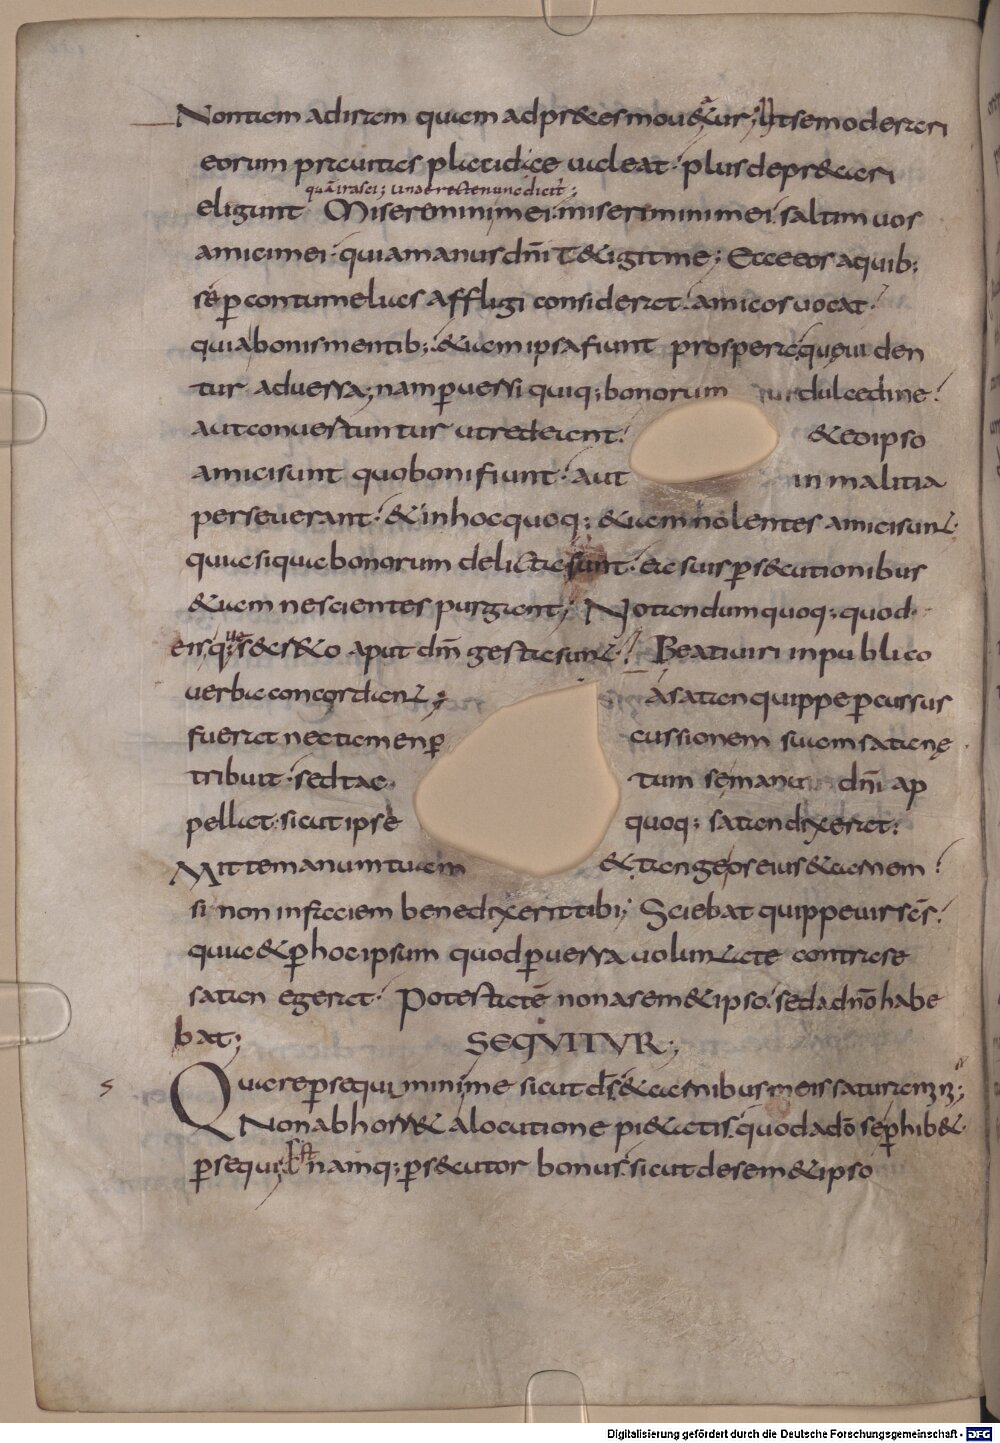 Non tam ad iram quam ad p̄ces mouetur; Ut se moderari
eorum prauitas placidae ualeat· plus depraecari
quā irasci; unde recte nunc dicit';
eligunt Miseremini mei· miseremini mei· saltim uos
amici mei· quia manus dn̄i tetigit me; Ecce eos a quib;
sęp contumelias affligi considerat· amicos uocat·
quia bonis mentib; etiam ipsa fiunt prospera· quę uiden
tur aduersa; nam puersi quiq; bonorum dulcedine·
aut conuertuntur ut redeant· & eo ipso
amici sunt quo boni fiunt· aut in malitia
perseuerant· & in hoc quoq; &iam nolentes amici sunt·
quia siqua bonorum delicta sunt· eis suis ps&cutionibus
&iam nescientes purgant; Notandum quoq; quod
uerba concordant; a satan quippe pcussus
fuerat nec tamen p cussionem suam satanę
tribuit· sed tac tum se manu dn̄i ap
pellat· sicut ipse quoq; satan dixerat·
Mitte manum tuam & tange os eius & carnem·
si non in faciem benedixerit tibi; Sciebat quippe uir sc̄s·
quia & p hoc ipsum quod puersa uoluntate contra se
satan egerat· Potestatē non a sem&ipso· sed a dn̄o habe
bat; SEQVITVR;
Quare psequimini me sicut ds̄ & carnibus meis saturamini;
Non abhorr& a locutione pi&atis· quod a dō se phib&
psequi; namq; ps&cutor bonus· sicut de sem&ipso
Digitalisierung gefördert durch die Deutsche Forschungsgemeinschaft - DFG